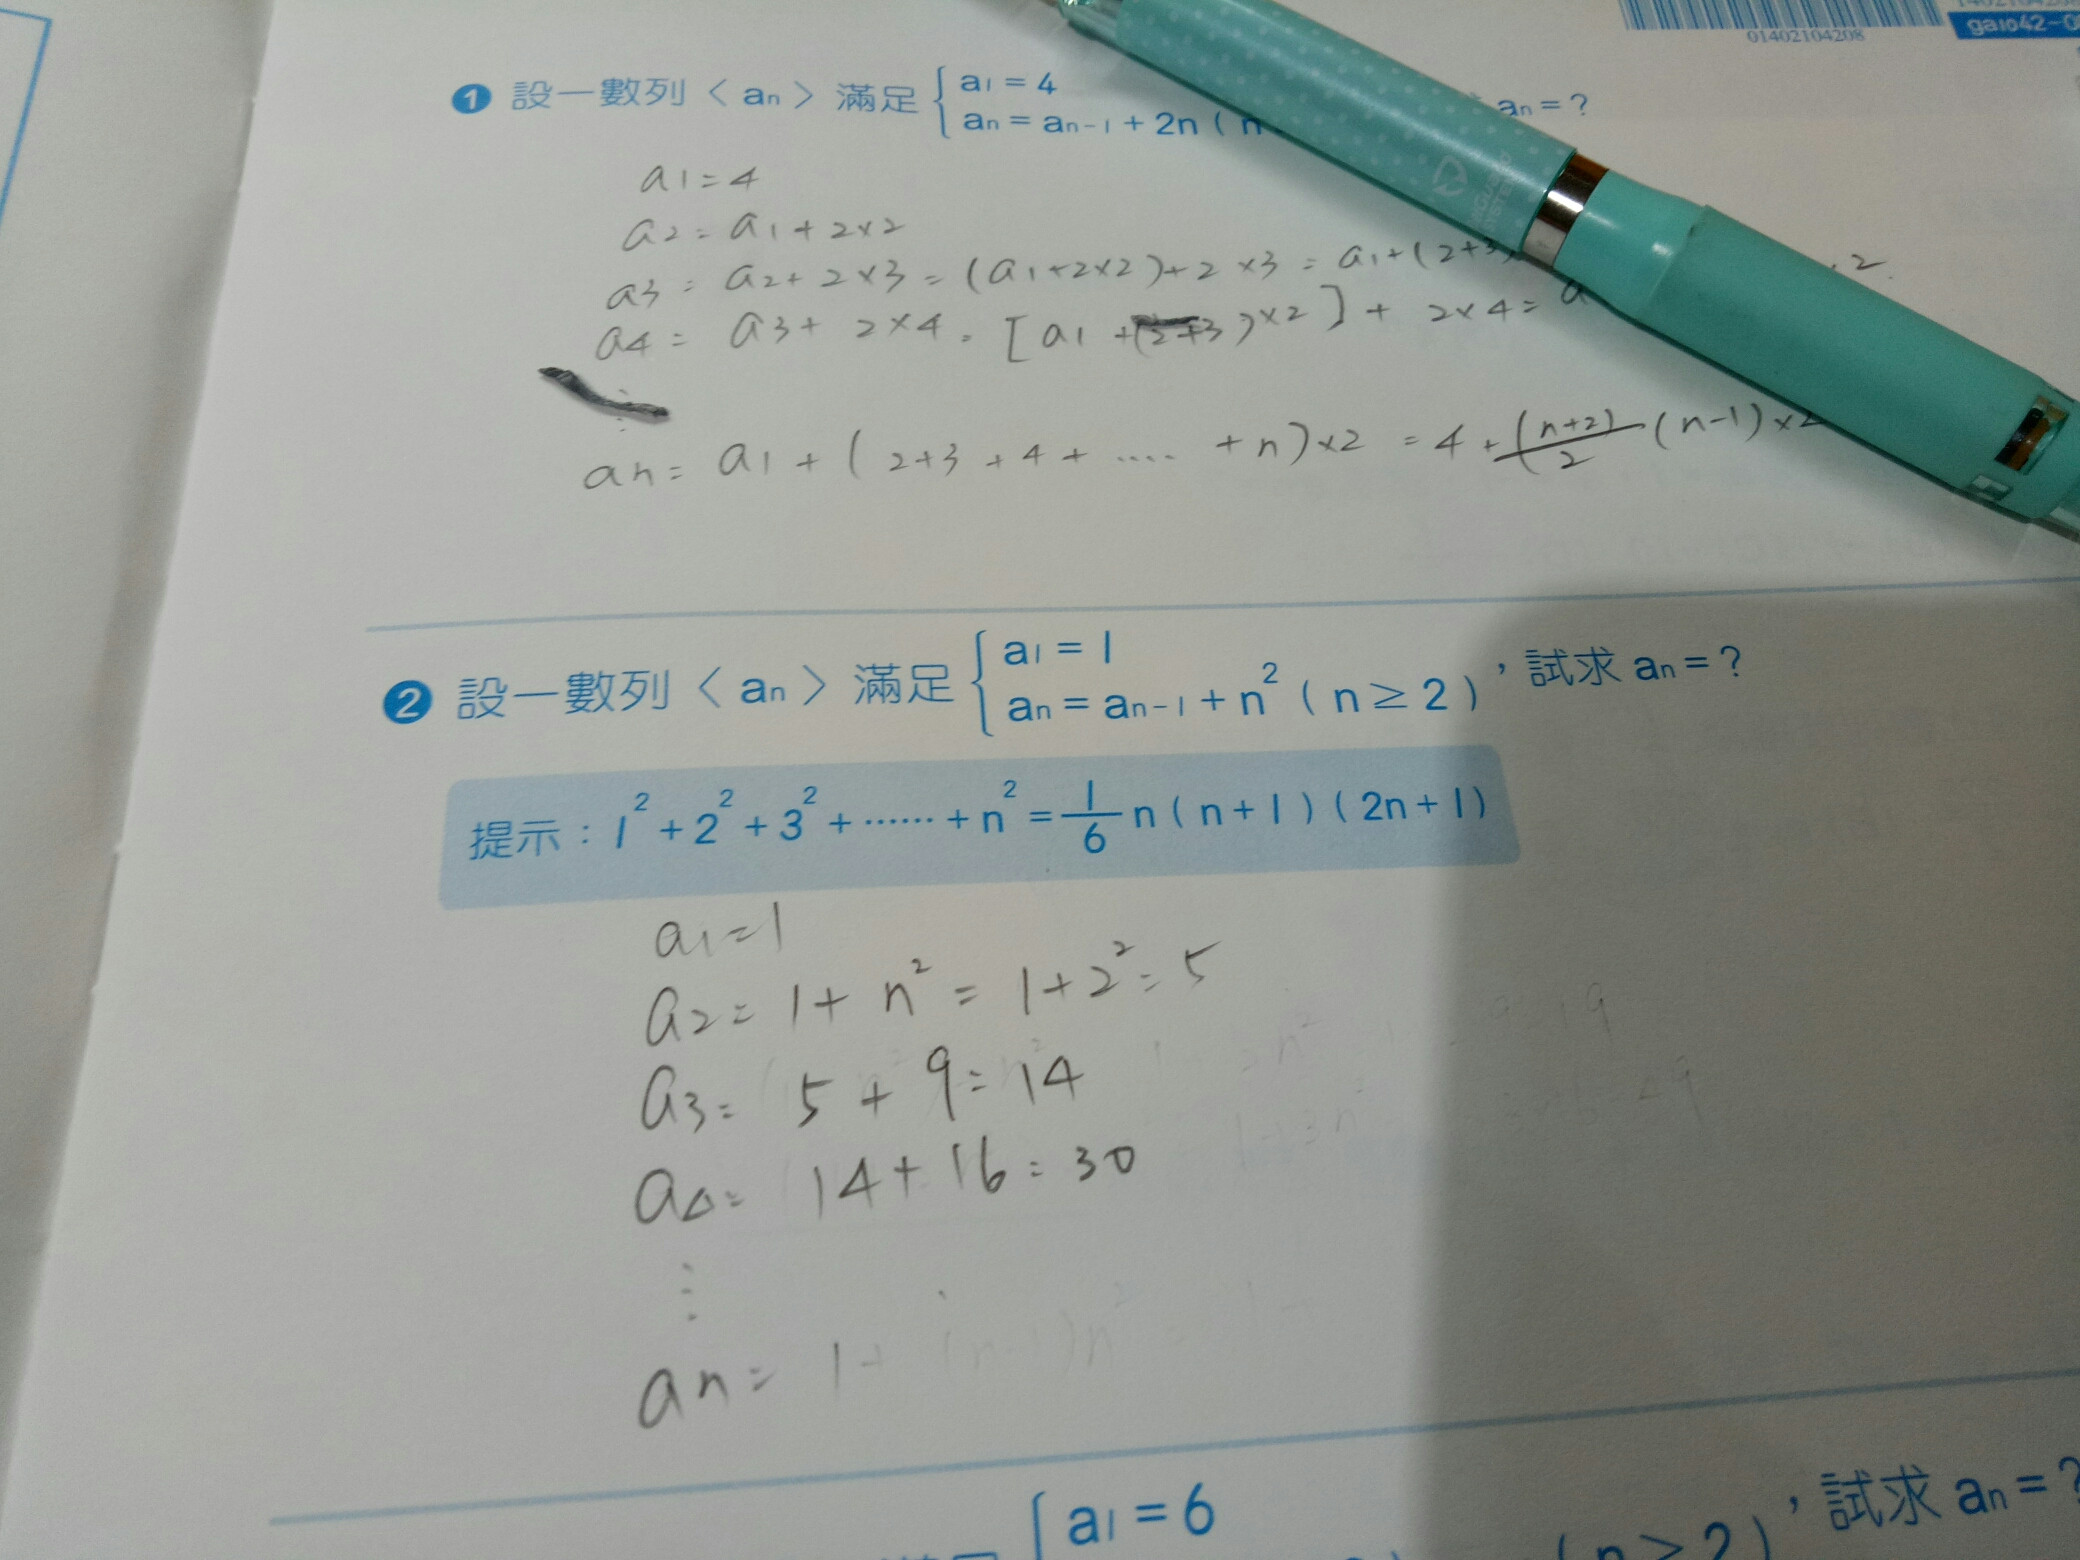 01402104208
ga1o42-0
❶ 設一數列〈an〉滿足 { a1 = 4
an = an-1 + 2n ( n
an = ?
a1 = 4
a2 = a1 + 2×2
a3 = a2 + 2×3 = (a1+2×2)+2×3 = a1+(2+3)
a4 = a3 + 2×4 = [a1+(2+3)×2] + 2×4 =
⋮
an = a1 + (2+3+4+....+n)×2 = 4 + (n+2)/2 (n-1)×2
❷ 設一數列〈an〉滿足 { a1 = 1
an = an-1 + n² ( n ≥ 2 ) ,試求 an = ?
提示:1² + 2² + 3² + ⋯⋯ + n² = 1/6 n ( n + 1 ) ( 2n + 1 )
a1 = 1
a2 = 1 + n² = 1+2² = 5
a3 = 5 + 9 = 14
a4 = 14 + 16 = 30
⋮
an = 1+ (n-1)n² =
{ a1 = 6
( n ≥ 2 ) ,試求 an = ?